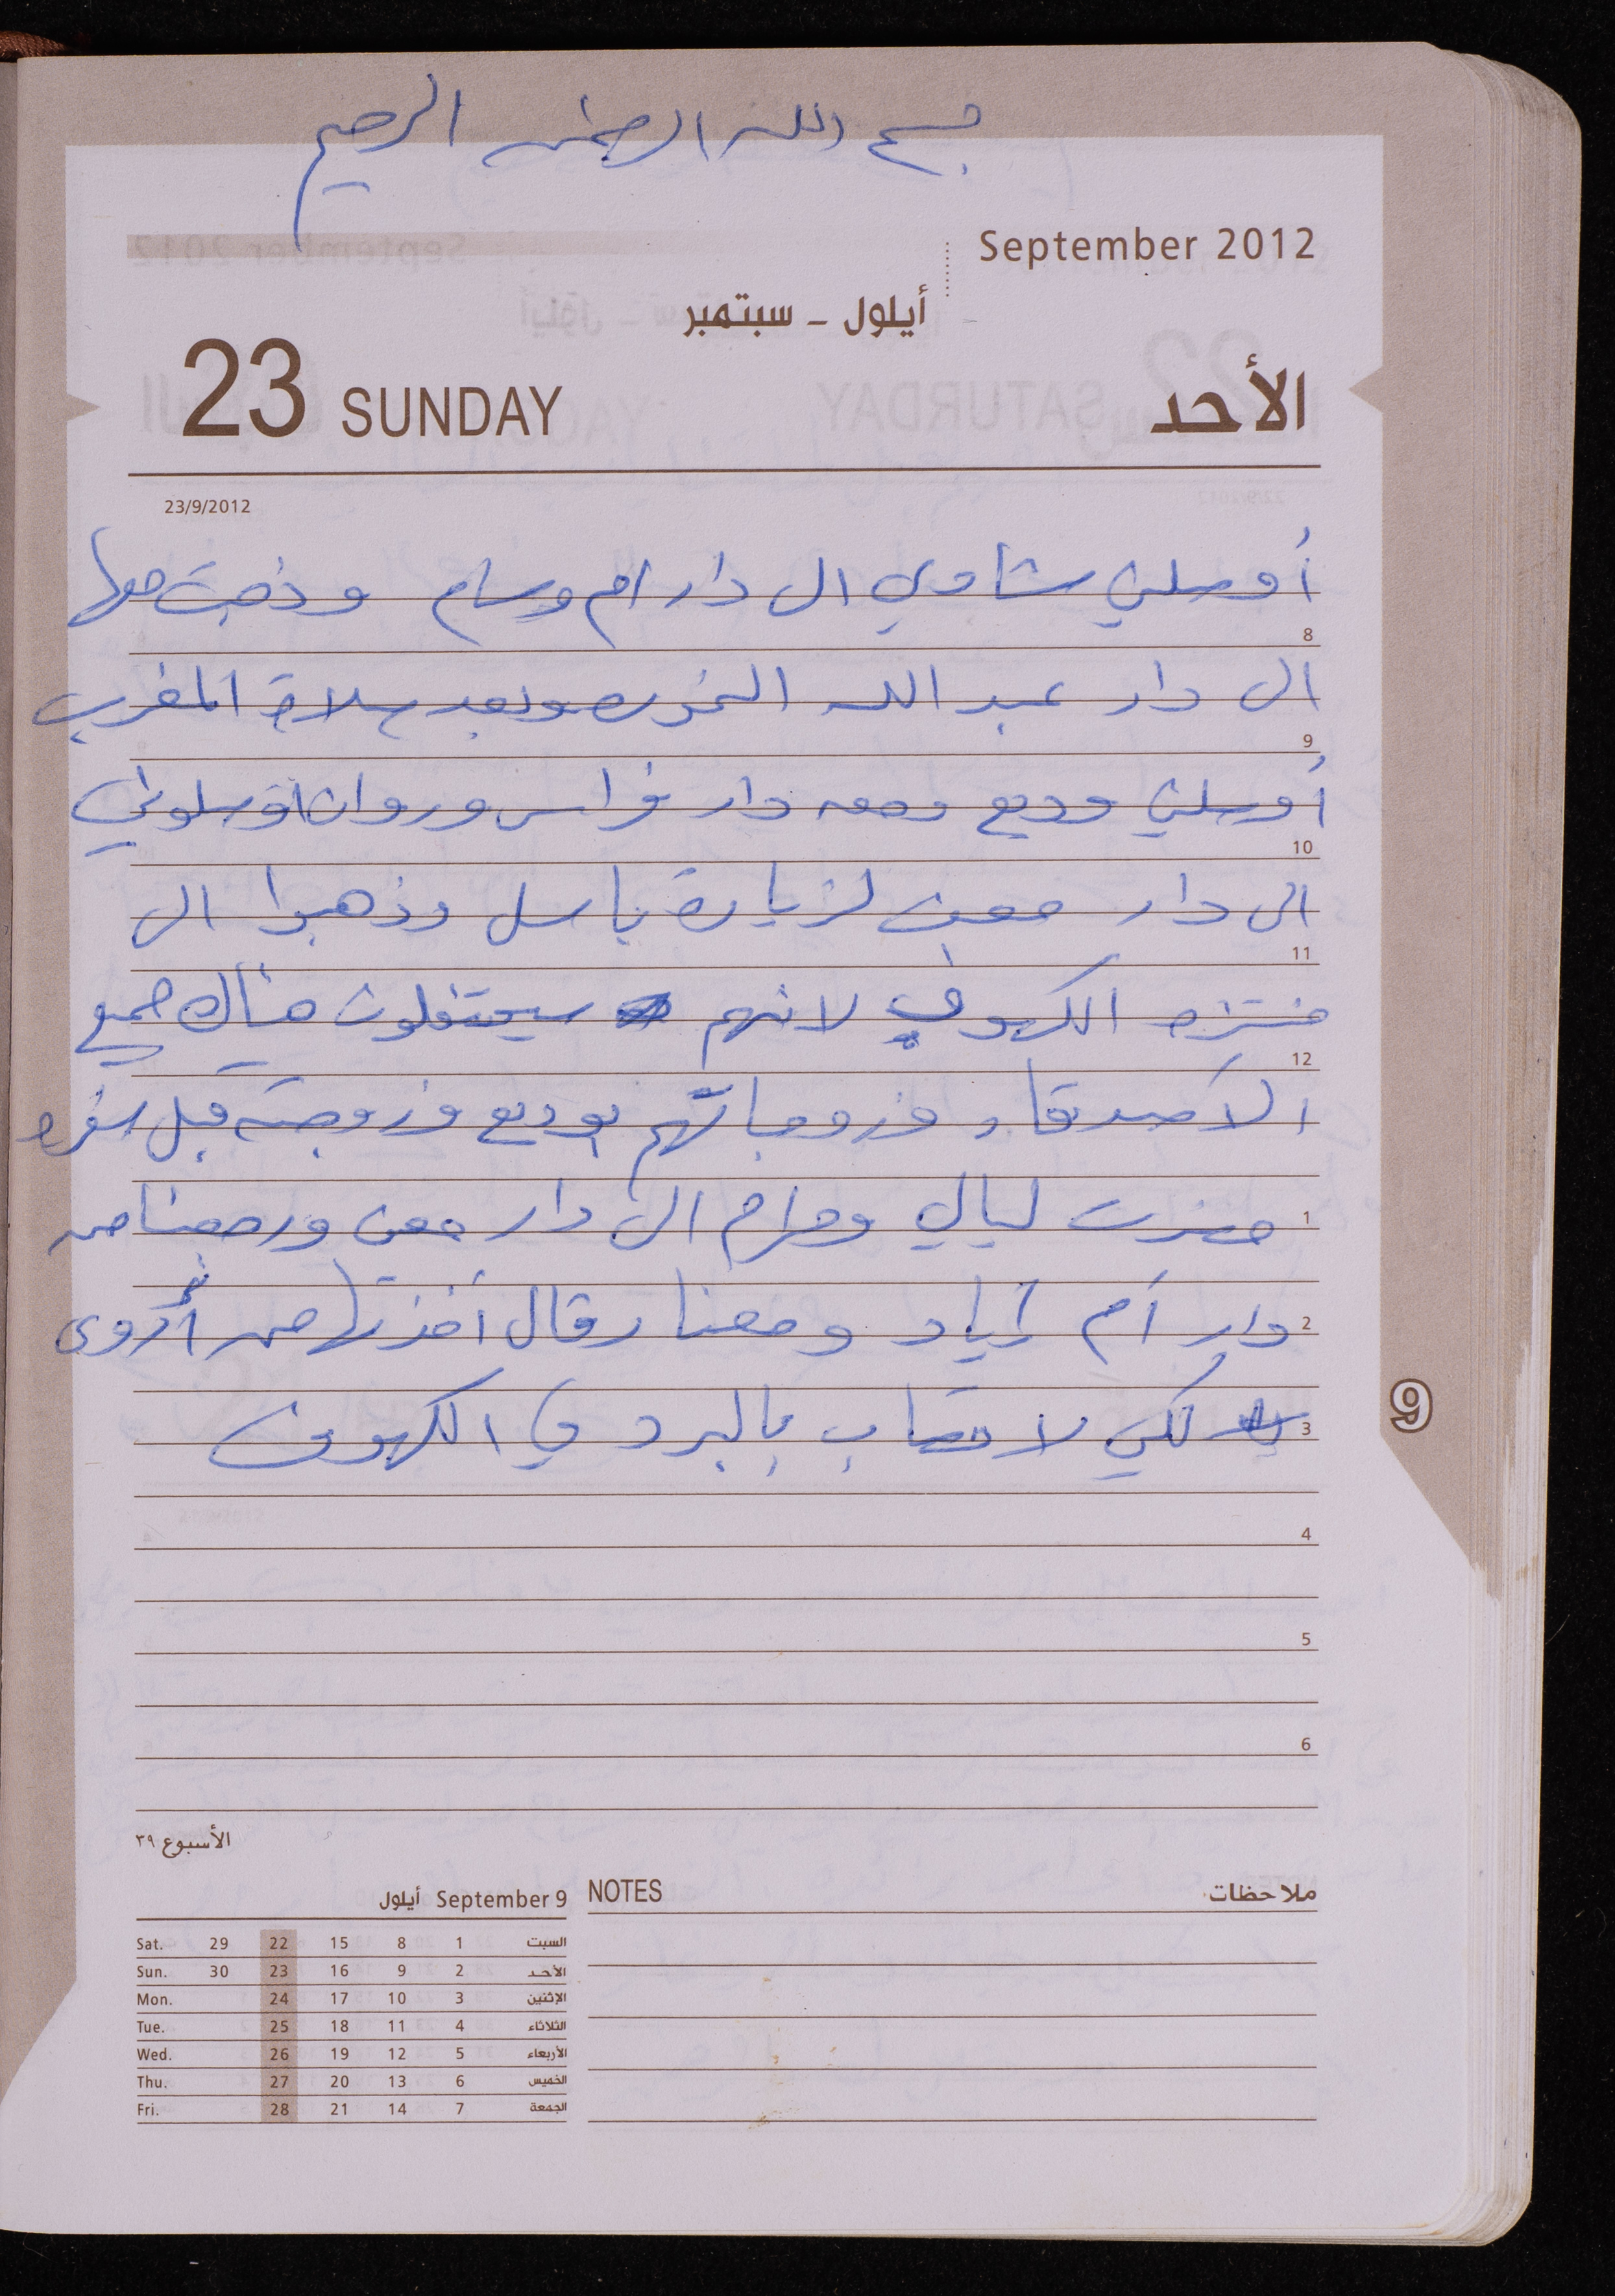 بسم الله الرحمن الرحيم
September 2012
أيلول - سبتمبر
23 SUNDAY الأحد
23/9/2012
أوصلني شادي الى دار ام وسام وذهبت معها
8
الى دار عبد الله وبعد صلاة المغرب
9
أوصلني وديع ومعه دار فراس وروان اوصلوني
10
الى دار معين لزيارة باسل وذهبوا الى
11
منتزه الكهوف لانهم سيحتفلون هناك جميع
12
الأصدقاء وزوجاتهم بوديع وزوجته قبل سفره
حضرت ليالي ومرام الى دار معين ورجعنا من
1
دار أم إياد ومعنا رقال أخذتها من أروى
2
لكي لا تصاب بالبرد في الكهوف
3
4
5
6
الأسبوع ٣٩
أيلول September 9
Sat. 29 22 15 8 1 السبت
Sun. 30 23 16 9 2 الأحد
Mon. 24 17 10 3 الإثنين
Tue. 25 18 11 4 الثلاثاء
Wed. 26 19 12 5 الأربعاء
Thu. 27 20 13 6 الخميس
Fri. 28 21 14 7 الجمعة
NOTES ملاحظات
9